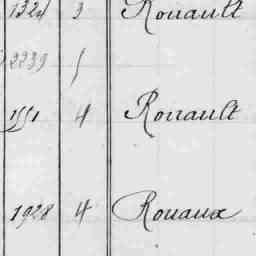 1324 3 Rouault
2239 1
1551 4 Rouault
1928 4 Rouaux